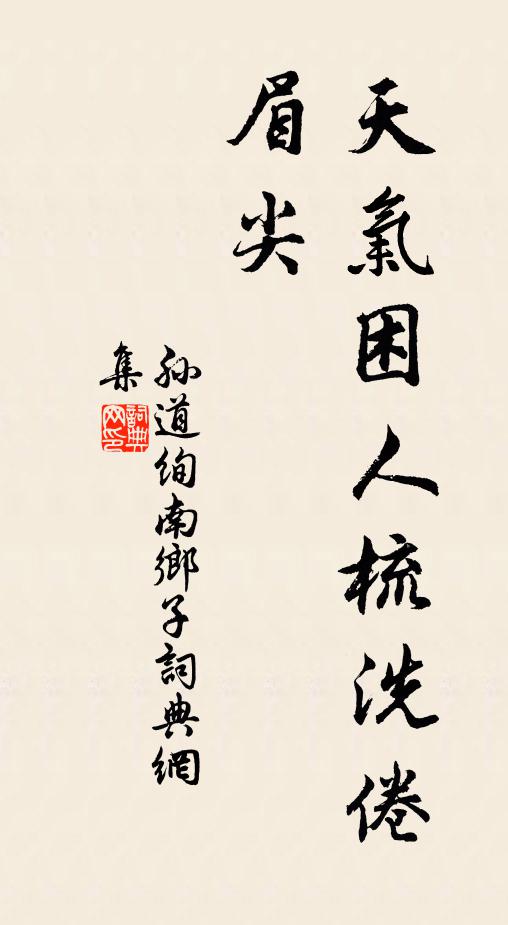 天氣困人梳洗倦
眉尖
孫道絢南鄉子詞典網
集
詞典
网印